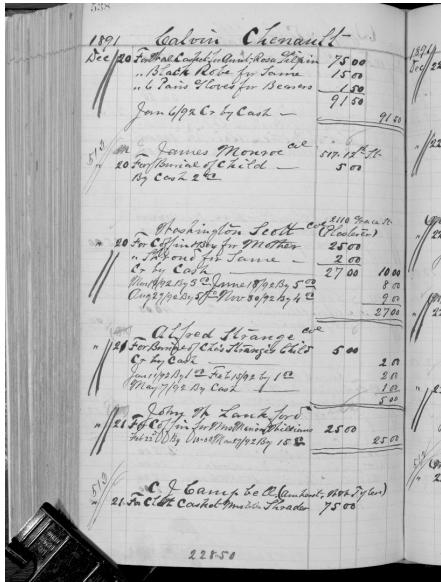 538
1891 Calvin Chenault
Dec 20 For Oral Casket for Aunt Rosa Gilpin 75 00
" Black Robe for Same 15 00
" 6 Pairs Gloves for Bearers 1 50
91 50
Jan 6/92 Cr by Cash — 91 50
513 James Monroe col 517-12th St
20 For Burial of Child — 5 00
By Cash 2 00
Washington Scott col 2110 Grace St
(Plasterer)
" 20 For Coffin & Box for Mother 25 00
" Shroud for Same — 2 00
Cr by Cash — 27 00 10 00
June 18/92 By 5 00 8 00
Aug 27/92 By 5 00 Nov 30/92 By 4 00 9 00
27 00
Alfred Strange col
" 21 For Burial of Chas Stranges Child 5 00
Cr by Cash — 2 00
By 1 00 Feb 13/92 by 1 00 2 00
May 7/92 By Cash 1 00
5 00
John Lankford
" 21 For Coffin for Mrs Williams 25 00
By 15 00 25 00
513 C. J. Campbell (Amherst,
21 For Casket Thrader 75 00
228 50